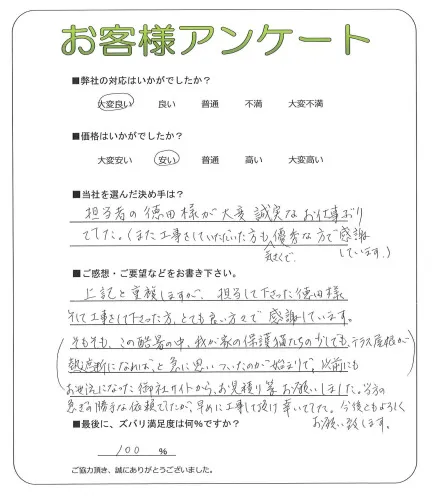 お客様アンケート
■弊社の対応はいかがでしたか？
大変良い 良い 普通 不満 大変不満
■価格はいかがでしたか？
大変安い 安い 普通 高い 大変高い
■当社を選んだ決め手は？
担当者の徳田様が大変誠実なお仕事ぶり
でした。(また工事をしていただいた方も、優秀な方で感謝
気さくで、
しています。)
■ご感想・ご要望などをお書き下さい。
上記と重複しますが、担当して下さった徳田様
そして工事をして下さった方、とても良い方々で感謝しています。
そもそも、この酷暑の中、我が家の保護猫たちの少しでも、テラス屋根が
熱遮断になれば、と急に思いついたのが始まりで、以前にも
お世話になった御社サイトから、お見積り等お願いしました。当方の
急ぎの勝手な依頼でしたが、早めに工事して頂け幸いでした。今後ともよろしく
お願い致します。
■最後に、ズバリ満足度は何％ですか？
100 ％
ご協力頂き、誠にありがとうございました。